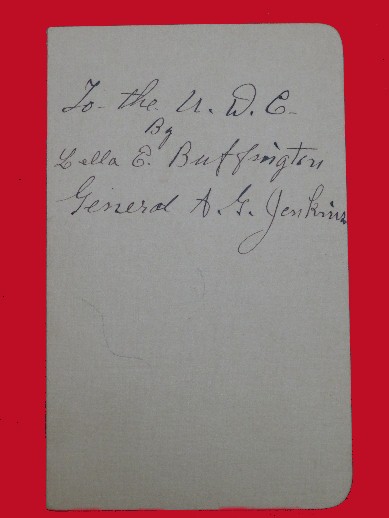 To the U. D. C.
By
Lella E. Buffington
General A. G. Jenkins